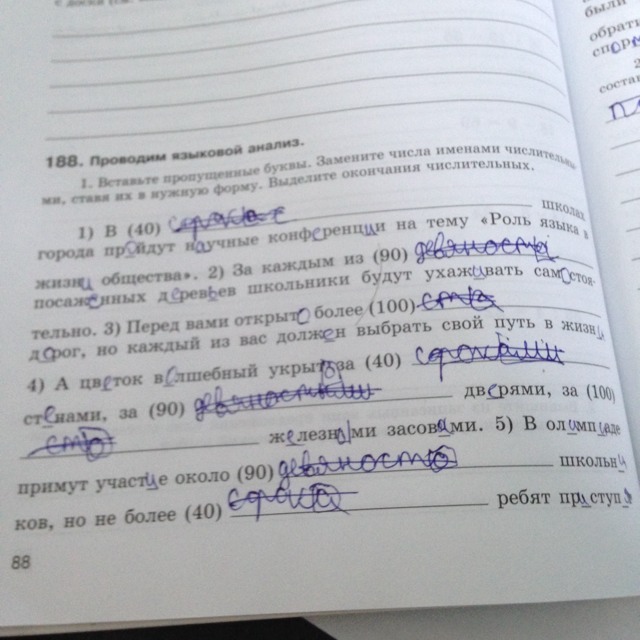 188. Проводим языковой анализ.
1. Вставьте пропущенные буквы. Замените числа именами числительны-
ми, ставя их в нужную форму. Выделите окончания числительных.
1) В (40) школах
города пройдут научные конференции на тему «Роль языка в
жизни общества». 2) За каждым из (90) девяносты
посаженных деревьев школьники будут ухаживать самостоя-
тельно. 3) Перед вами открыто более (100) ста
дорог, но каждый из вас должен выбрать свой путь в жизни
4) А цветок волшебный укрыт за (40)
стенами, за (90) дверями, за (100)
сто железными засовами. 5) В олимпиаде
примут участие около (90) девяносто школьни
ков, но не более (40) сорока ребят приступ
88
были
обрати
спорт
2
состав